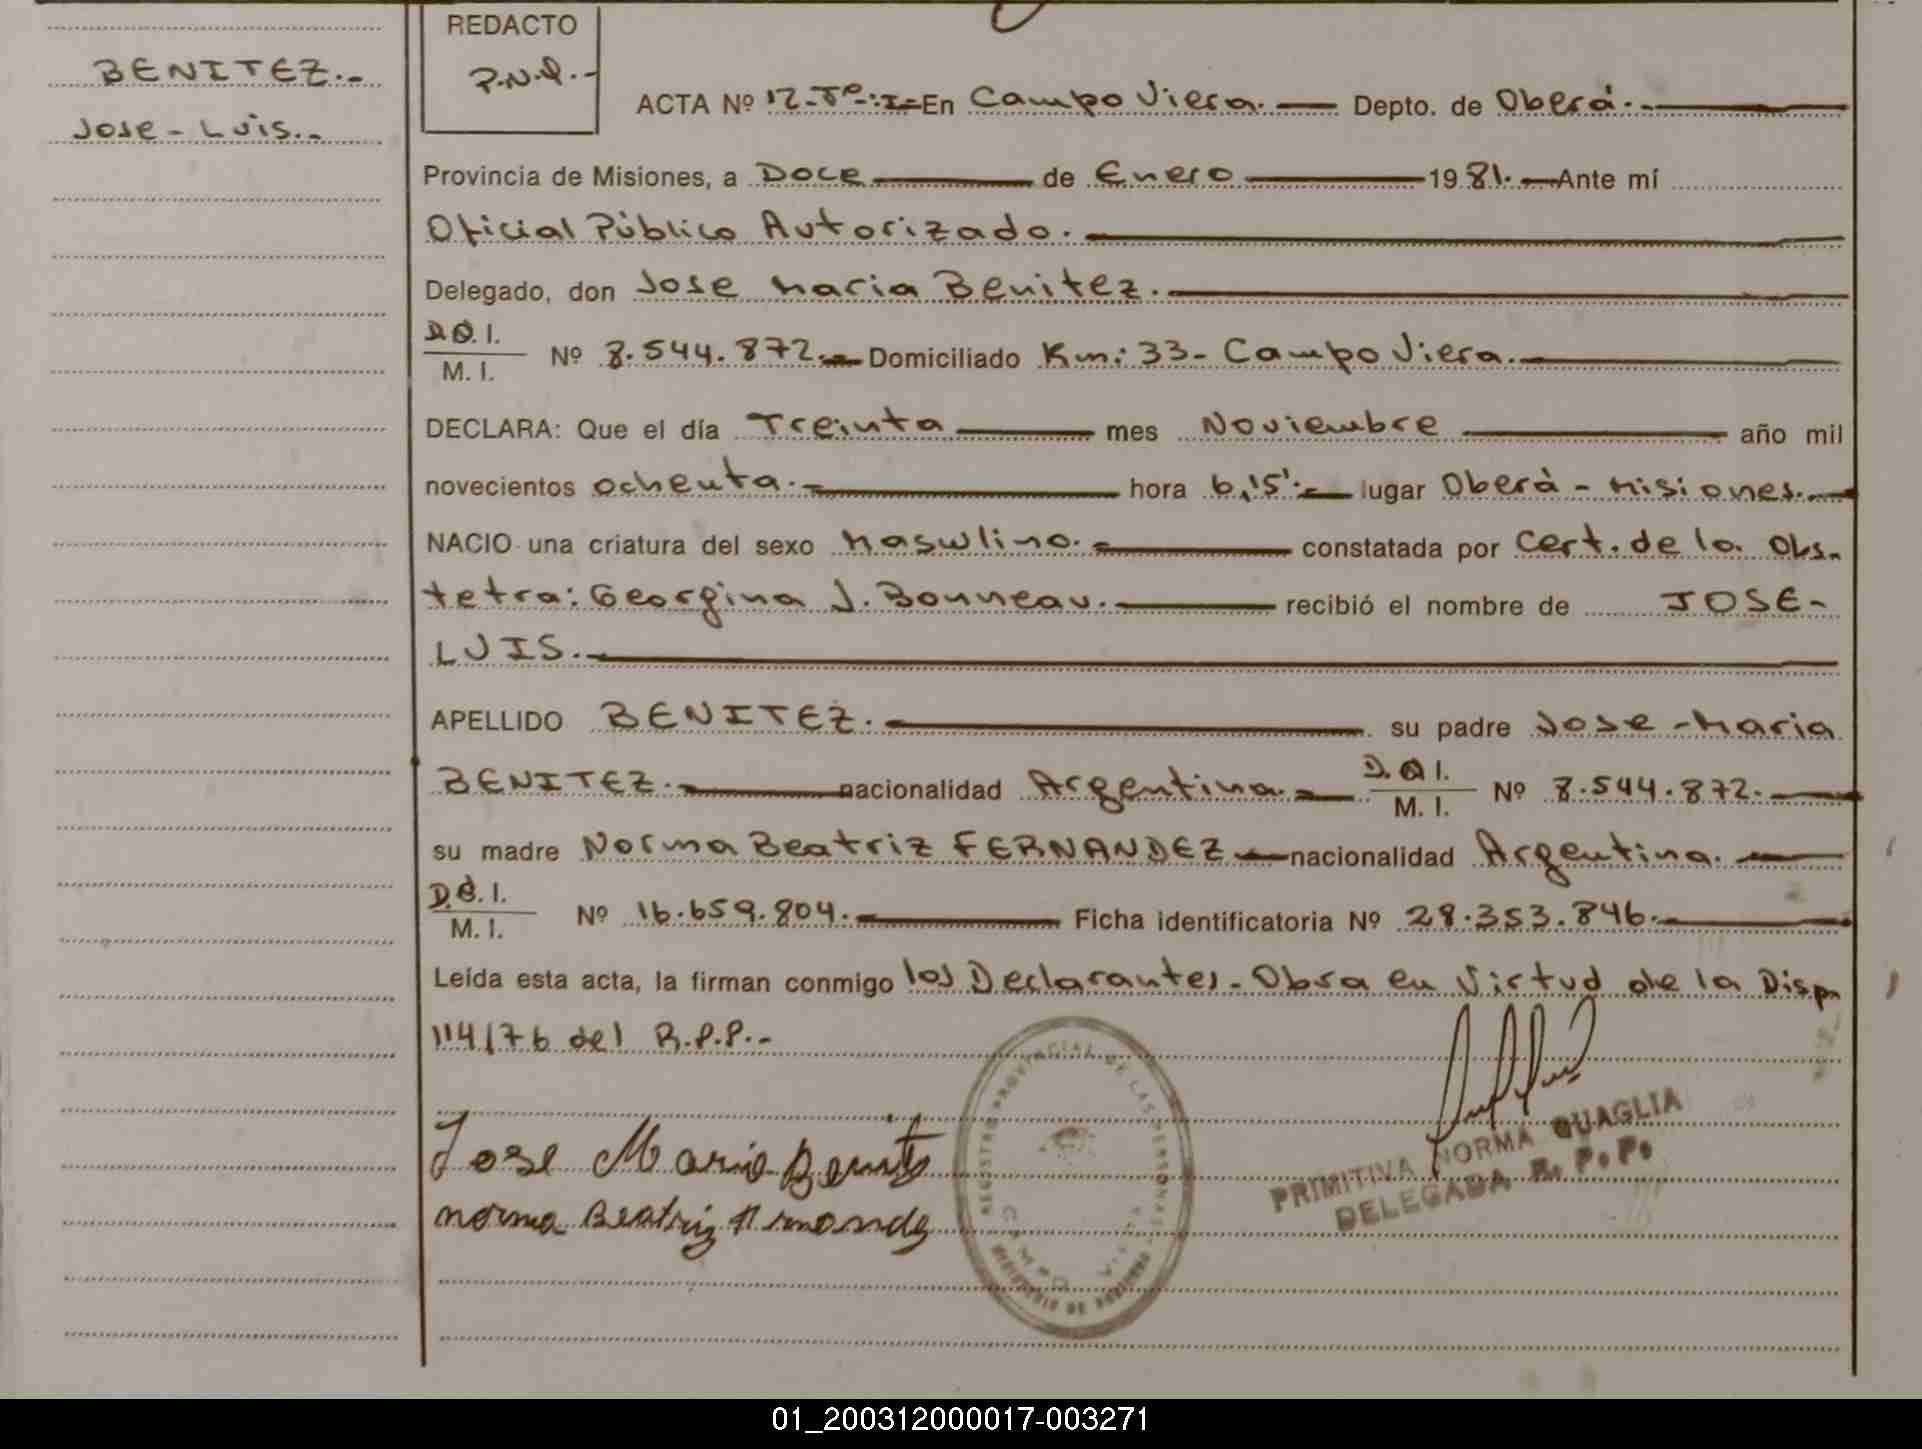 BENITEZ.-
Jose - Luis.-
REDACTO
P.N.Q.-
ACTA Nº 12-Tº-:I- En Campo Viera. Depto. de Oberá.-
Provincia de Misiones, a Doce de Enero 1981.- Ante mí
Oficial Público Autorizado.
Delegado, don Jose Maria Benitez.
D.O.I.
M. I. Nº 8.544.872.- Domiciliado Km: 33- Campo Viera.
DECLARA: Que el día Treinta mes Noviembre año mil
novecientos ochenta.- hora 6,15'.- lugar Oberá - Misiones.-
NACIO una criatura del sexo Masculino.- constatada por Cert. de la Obs-
tetra: Georgina J. Bonneau. recibió el nombre de JOSE-
LUIS.-
APELLIDO BENITEZ. su padre Jose - Maria
BENITEZ.- nacionalidad Argentina.- D.O.I. M. I. Nº 8.544.872.
su madre Norma Beatriz FERNANDEZ nacionalidad Argentina.
D.C.I.
M. I. Nº 16.659.804. Ficha identificatoria Nº 28.353.846.
Leída esta acta, la firman conmigo los Declarantes - Obra en Virtud de la Dispn
114/76 del R.P.P.-
Jose Maria Benitez
norma Beatriz Fernandez
REGISTRO PROVINCIAL DE LAS PERSONAS
CAMPO VIERA
MINISTERIO DE GOBIERNO
PRIMITIVA NORMA QUAGLIA
DELEGADA R. P. P.
01_200312000017-003271